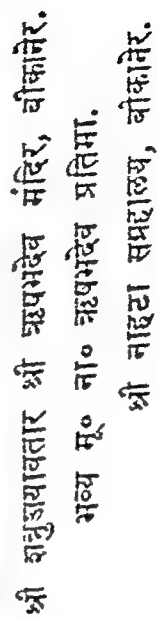 श्री शत्रुञ्जयावतार श्री ऋषभदेव मंदिर, बीकानेर.
भव्य मू० ना० ऋषभदेव प्रतिमा.
श्री नाहटा सग्रहालय, बीकानेर.